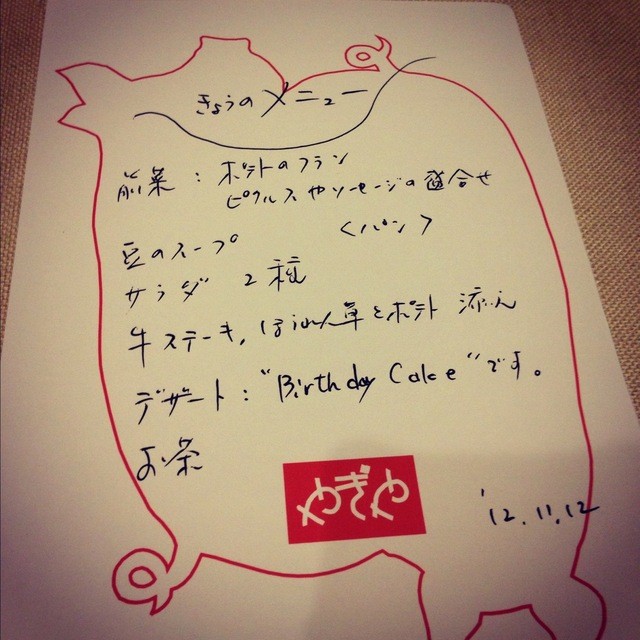 きょうのメニュー
前菜 : ポテトのフラン
ピクルスやソーセージの盛合せ
<パン>
豆のスープ
サラダ 2種
牛ステーキ, ほうれん草とポテト 添え
デザート : "Birthday Cake"です。
お茶
やぎや
'12.11.12